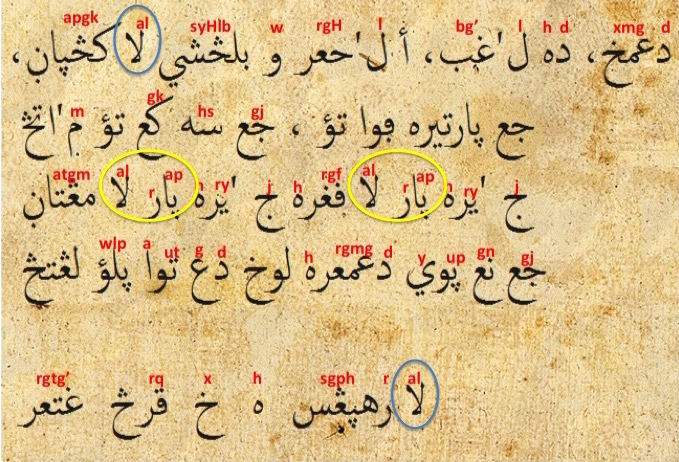 apgk al syHlb w rgH l bg' l h d xmg d
دعمخ، ده ل'غب، أ ل'حعر و بلڅشي لا كڅپان،
m gk hs gj
جع پارتيره ڢوا تؤ ، جع سه كع تؤ م'اتڅ
atgm al r ap h ry j h rgf al r ap h ry j
ج 'يره بار لا ڢغره ج 'يره بار لا مڠتان
wlp a ut g d h rgmg d y up gn gj
جع نع پوي دعمعره لوخ دع توا پلؤ لغتڅ
rgtg' rq x h sgph r al
لا رهپڠس ه خ قرڅ غتعر